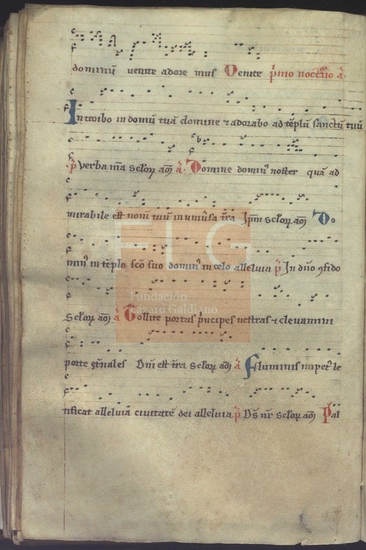 dominũ venite adore mus Venite p̄mo nocturno a̅
Introibo in domũ tuã domine ⁊ adorabo ad tẽplũ sanctũ tuũ
p̄ Verba m̃a sclor̃ am̃ a̅ Domine domin⁹ noster quã ad
mirabile est nom̃ tuũ in uniũsa t̃ra Ip̃m sclor̃ am̃ Do
min⁹ in tẽplo sc̃o suo domin⁹ in celo alleluia p̄ In dño ꝯfido
sclor̃ am̃ a̅ Tollite portas p̃ncipes vestras ⁊ elevamini
porte et̃nales Dñi est t̃ra sclor̃ am̃ a̅ Fluminis impet⁹ le
tificat alleluia civitatẽ dei alleluia p̄ D̃s nr̃ sclor̃ am̃ Psal
FLG
Fundación